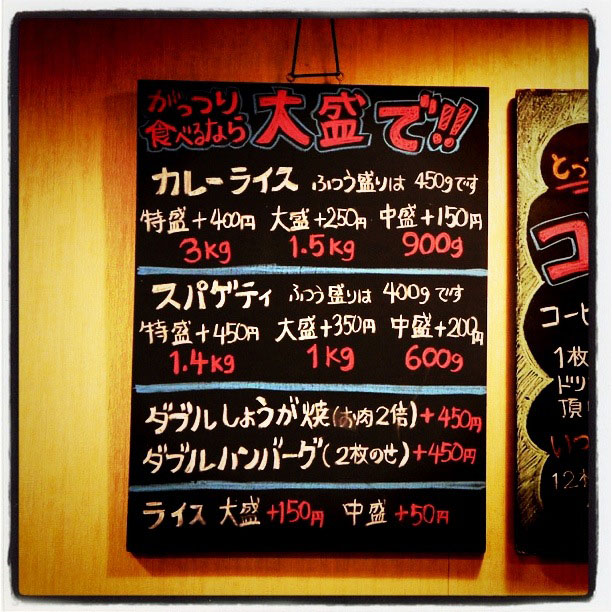 がっつり
食べるなら 大盛で!!
カレーライス ふつう盛りは 450gです
特盛+400円 大盛+250円 中盛+150円
3kg 1.5kg 900g
スパゲティ ふつう盛りは 400gです
特盛+450円 大盛+350円 中盛+200円
1.4kg 1kg 600g
ダブルしょうが焼(お肉2倍)+450円
ダブルハンバーグ(2枚のせ)+450円
ライス 大盛+150円 中盛+50円
とっ
コ
コーヒ
1枚
ドリ
頂
いつ
12枚